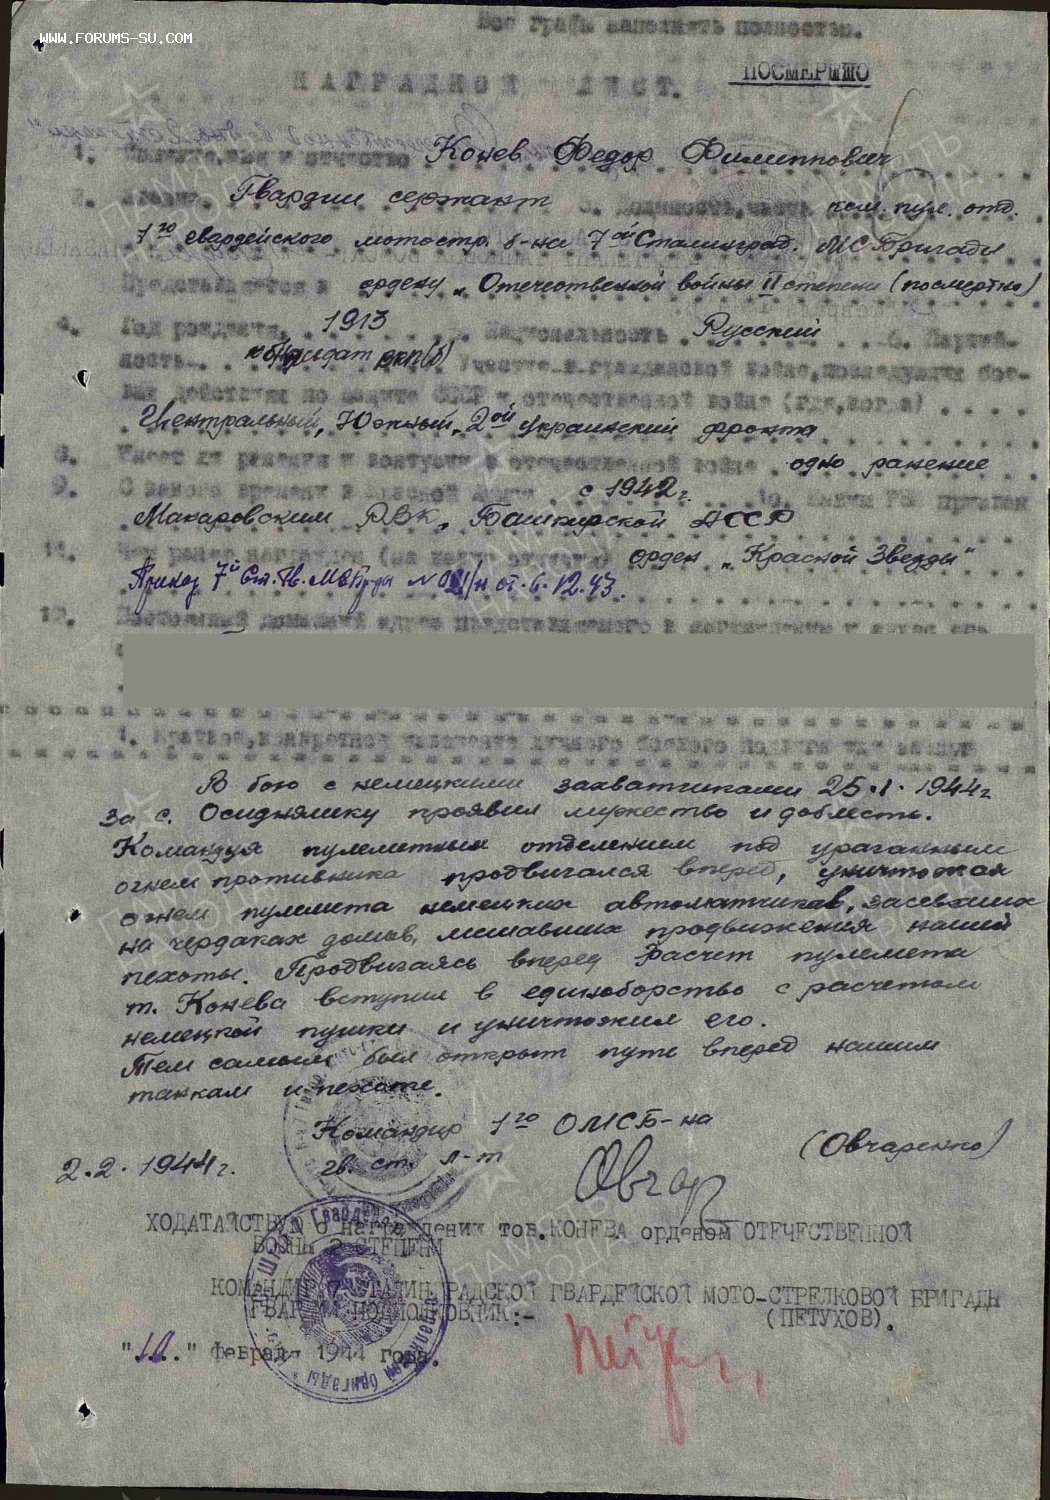 WWW.FORUMS-SU.COM
Все графы заполнять полностью.
ПОСМЕРТНО
НАГРАДНОЙ ЛИСТ.
1. Фамилия, имя и отчество Конев Федор Филиппович
2. Звание Гвардии сержант 3. Должность, часть ком. пул. отд.
1го гвардейского мотостр. б-на 7ой Сталинград. МСБригады
Представляется к ордену „Отечественной войны II степени (посмертно)
4. Год рождения 1913 5. Национальность Русский 6. Партий-
ность кандидат вкп(б) Участие в гражданской войне, последующих бое-
вых действиях по защите СССР и отечественной войне (где, когда)
Центральный, Южный, 2ой украинский фронта
8. Имеет ли ранения и контузии в отечественной войне одно ранение
9. С какого времени в Красной Армии с 1942 г. 10. Каким РВК призван
Макаровским РВК, Башкирской АССР
11. Чем ранее награжден (за какие отличия) орден „Красной Звезды“
Приказ 7й Ст. Гв. МСБр-ды от 6.12.43.
12. Постоянный домашний адрес представляемого к награждению и адрес его
1. Краткое, конкретное изложение личного боевого подвига или заслуг
В бою с немецкими захватчиками 25.1.1944 г
за с. Осидняшку проявил мужество и доблесть.
Командуя пулеметным отделением под ураганным
огнем противника продвигался вперед, уничтожая
огнем пулемета немецких автоматчиков, засевших
на чердаках домов, мешавших продвижения нашей
пехоты. Продвигаясь вперед расчет пулемета
т. Конева вступил в единоборство с расчетом
немецкой пушки и уничтожил его.
Тем самым был открыт путь вперед нашим
танкам и пехоте.
Командир 1го ОМСБ-на
гв. ст. л-т (Овчаренко)
2.2.1944 г.
Овчар
ХОДАТАЙСТВУЮ о награждении тов. КОНЕВА орденом ОТЕЧЕСТВЕННОЙ
ВОЙНЫ 2 СТЕПЕНИ
КОМАНДИР 7 СТАЛИНГРАДСКОЙ ГВАРДЕЙСКОЙ МОТО-СТРЕЛКОВОЙ БРИГАДЫ
ГВАРДИИ ПОДПОЛКОВНИК:- (ПЕТУХОВ).
"10." февраля 1944 года.
ПАМЯТЬ НАРОДА